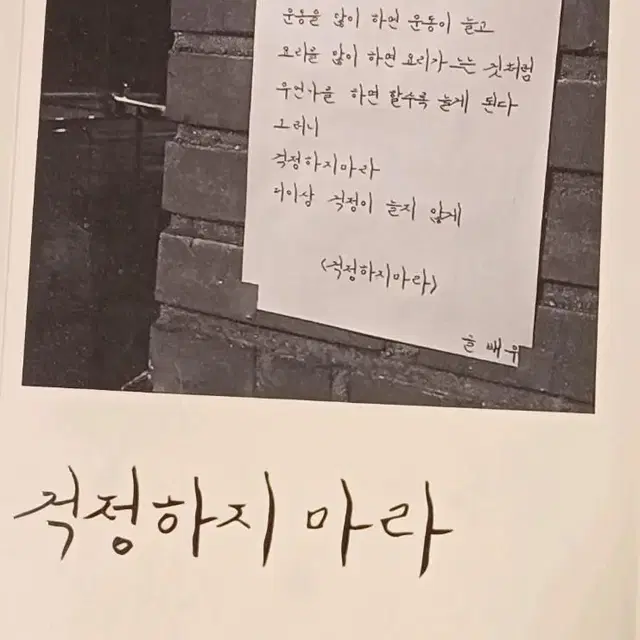 운동을 많이 하면 운동이 늘고
요리을 많이 하면 요리가 느는 것처럼
무언가을 하면 할수록 늘게 된다
그러니
걱정하지마라
더이상 걱정이 늘지 않게
<걱정하지마라>
글 배우
걱정하지 마라